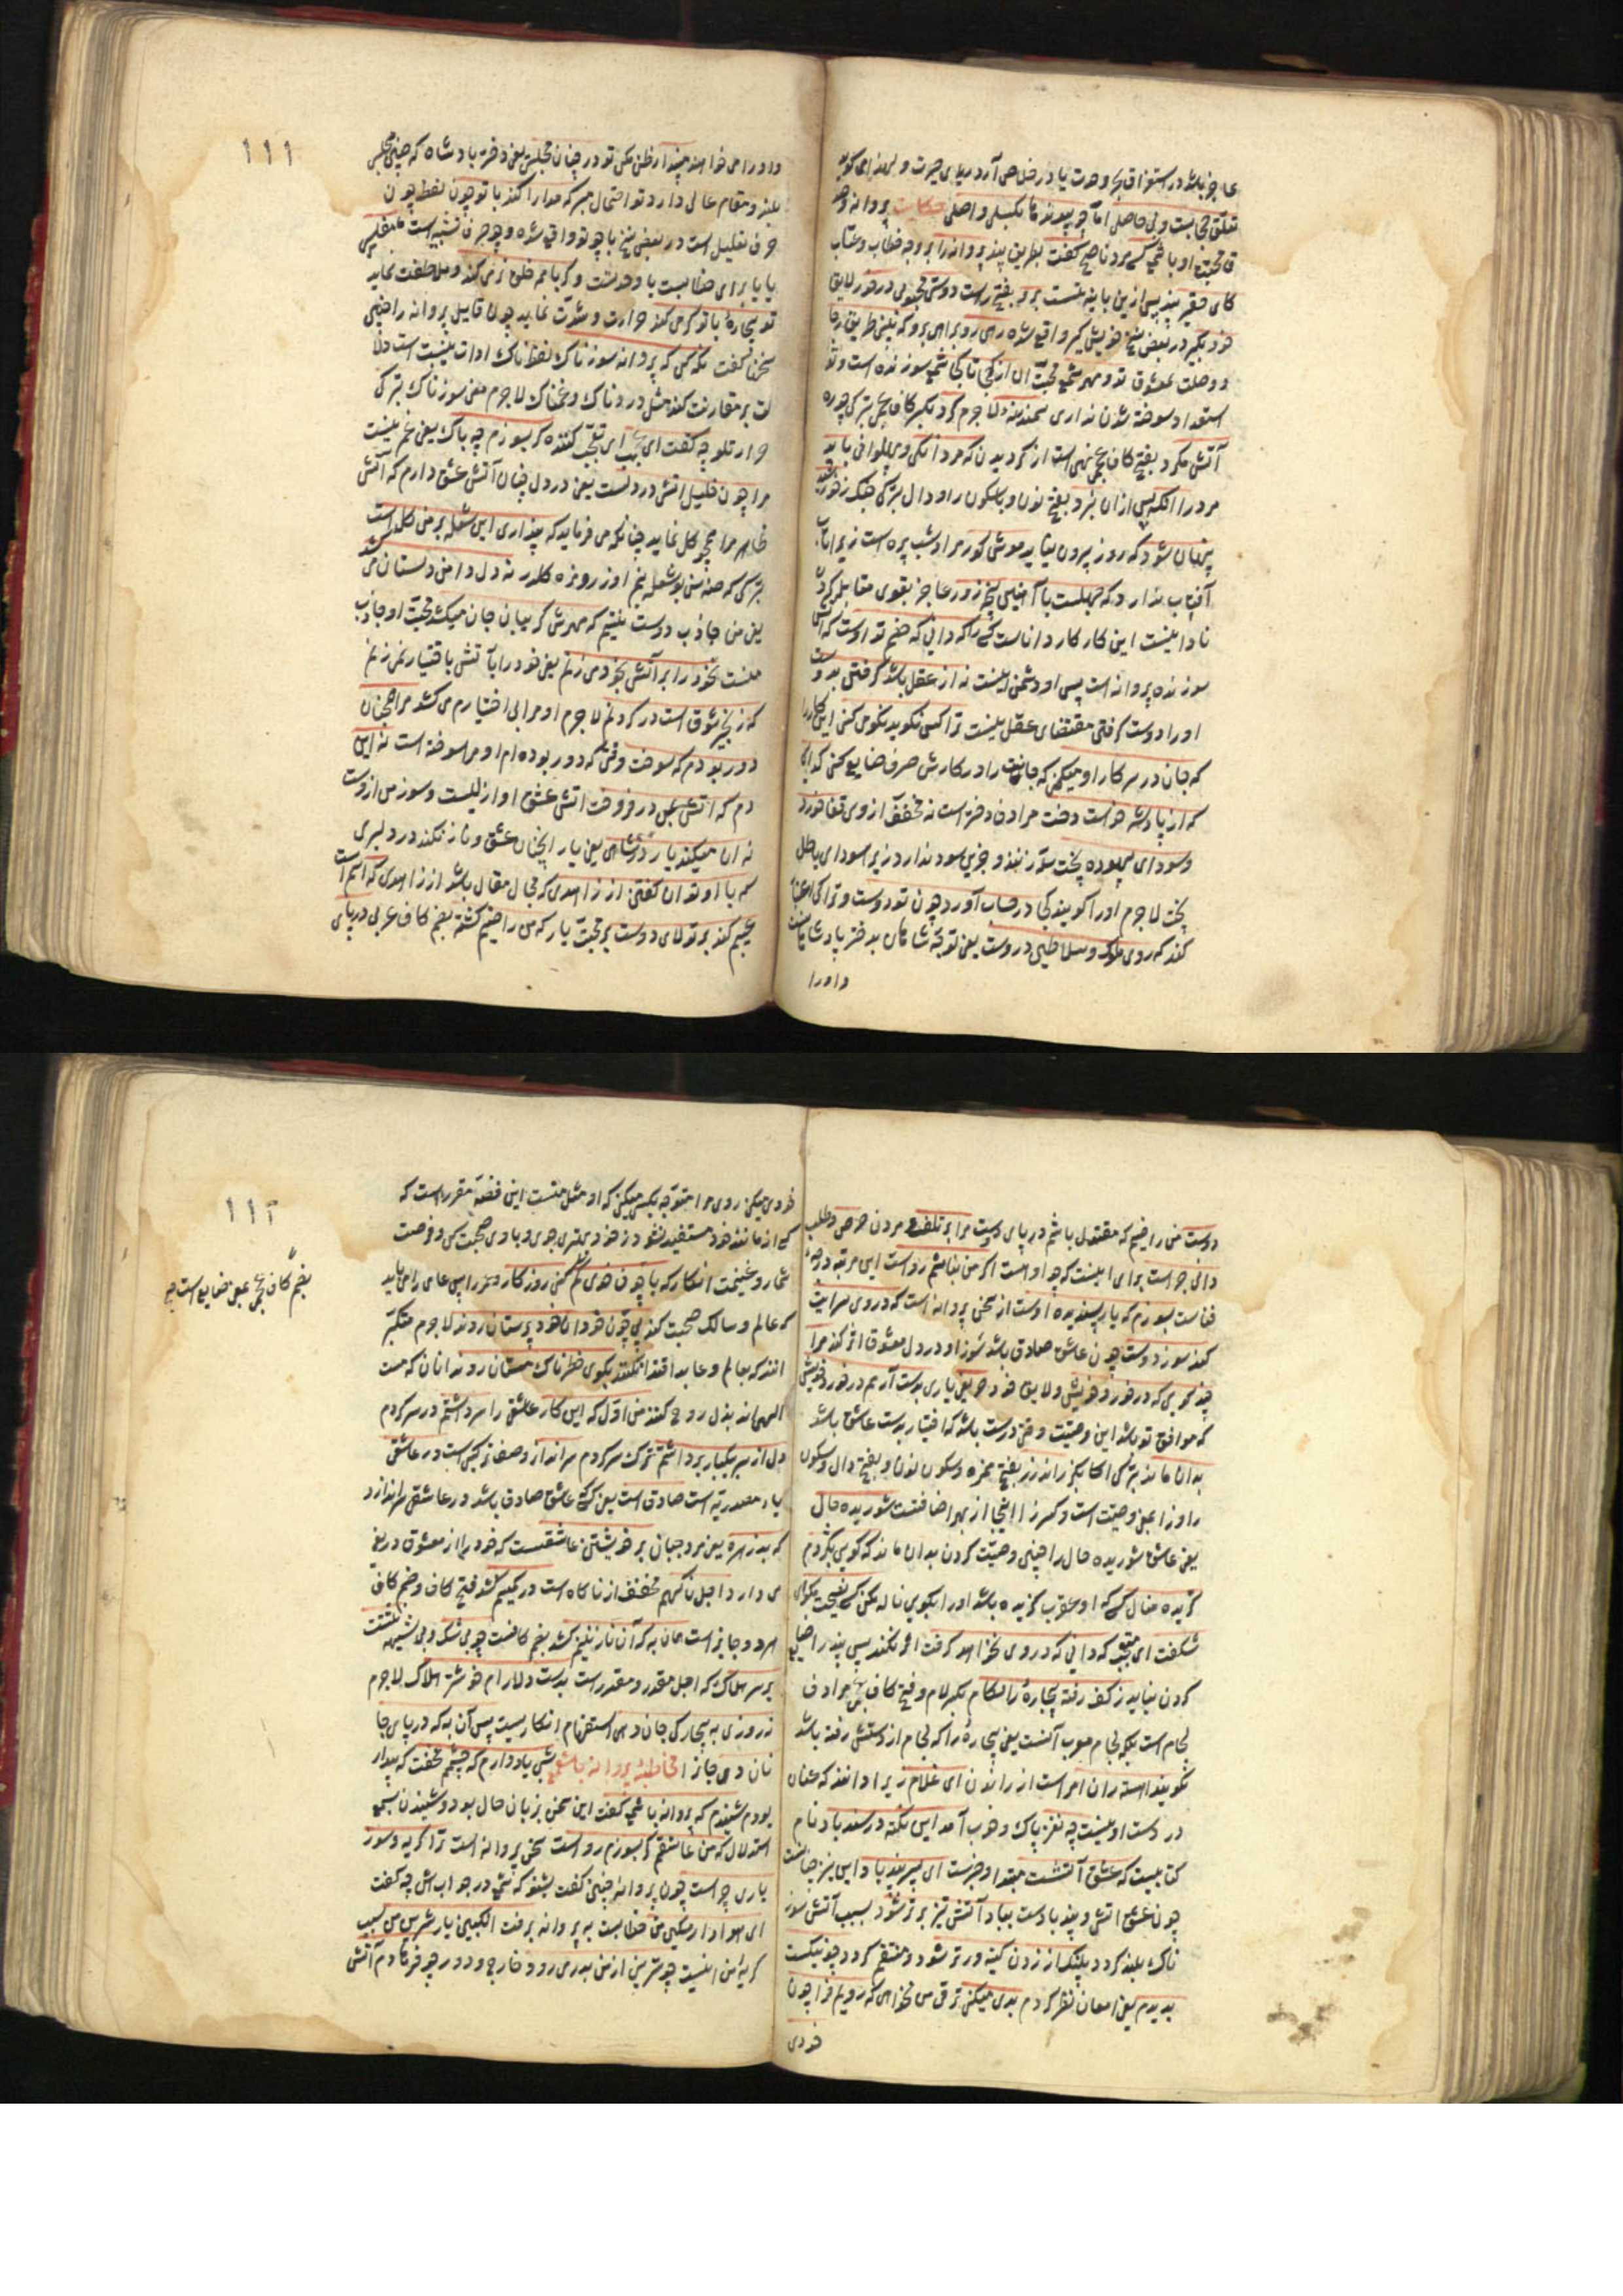 عاجز باشد در استغراق بحر وحدت یا در خلاص آرد دریای حیرت و لهذا می گوید
تعلق حجابست و بی حاصلی اما چو پیوندها بکسلی واصلی حکایت پروانه و صد
ق محبته او با شمع کسی مرد ناصح گفت بطریق پند پروانه را بر وجه خطاب و عتاب
کای حقیر پند پس از من باینه نیست برو بفتح راست دوستی محبوبی در خور لایق
خود بگیر در بعض نسخ خویش گیر واقع شده رهی رو براهی برو که بینی طریق رجا
و وصلت بمعشوق تو و مهر شمع محبت آن از کجا تا کجا شمع سوزنده است و تو
استعداد سوخته شدن نداری سمندر نه لاجرم کرد بکسر کاف عجمی بترکی چوره
آتش مکرد بفتح کاف عجمی نهی است از کردیدن که مردانگی و پهلوانی باید
مرد را انکه پس از ان نبرد بفتح نون و با سکون را و دال بترکی جنک ز خورشید
پنهان شود که روز بیرون نیاید موش کور مراد شب پره است زیرا تاب
آفتاب ندارد که جهلست با آهنین پنجه زور عاجز بقوی مقابله کردن
نادانیست این کار کار دانا ست کسی را که دانی که خصم تو اوست که آتش
سوزنده پروانه است پس او دشمن اینست نه از عقل باشد گرفتن بدوست
او را دوست گرفتن مقتضای عقل نیست ترا کسی نگوید نکو می کنی این کار را
که جان در سر کار او میکنی که جانت را در کارش صرف ضایع مکنی گدایی
که از پادشه خواست دخت مرادف دخترست نه مخفف از وی قفا خورد
و سودای بیهوده پخت سودا نپزند و چیزی سود ندارد زیرا سودای باطل
پخت لاجرم او را گویند کجا در حساب آورد چون تو دوست و ترا کی اعتبار
کند که روی ملوک و سلاطین در اوست یعنی توجه شاهان بدختر پادشاهانست
و او را

١١١
و او را می خواهند مپندار ظن مکن تو در چنان مجلس یعنی دختر پادشاه که چنین مجلس
بلند و مقام عالی دارد تو احتمال مبر که مدارا کند با تو چون لفظ چون
حرف تعلیل است در بعض نسخ با چو تو واقع شده و چو حرف تشبیه است مفلسی
یا یا برای خطابست یا وحدتست و گر با همه خلق نرمی کند و ملاطفت نماید
تو بیچارۀ با تو گرمی کند حرارت و شدت نماید چون قایل پروانه را چنین
سخن گفت نگه کن که پروانه سوزناک لفظ ناک ادات نسبت است دلا
لت بر مقارنت کند مثل دردناک و غمناک لاجرم معنی سوزناک بترکی
حرارتلو چه گفت ای عجب ای تعجب کننده گر بسوزم چه باک یعنی غم نیست
مرا چون خلیل آتش در دلست یعنی در دل چنان آتش عشق دارم که آتش
ظاهر مرا همچو گل نماید چنانکه می فرماید که پنداری این شعله بر من گلست
نه دل دامن دلستان می کشد
یعنی من جاذب دوست نیستم که مهرش گریبان جان میکشد محبت او جاذب
منست نه خود را بر آتش بخود می زنم یعنی خود را بآتش باختیار نمی زنم
که زنجیر شوق است در گردنم لاجرم او مرا بی اختیارم می کشد مرا همچنان
دور بودم که سوخت وقتی که دور بوده ام او مرا سوخته است نه این
دم که آتش بمن در فروخت آتش عشق او ازلیست و سوز من از اوست
نه آن میکند یار در شاهدی یعنی یار انچنان عشق و ناز نکند در دلبری
که با او توان گفتن از زاهدی که مجال مقال باشد از زاهدی که اسم است
عیبم کند بر تولای دوست بر محبت یار که من راضیم کشته بضم کاف عربی در پای

دوست من راضیم که مقتول باشم در پای دوست مرا بر تلف و مردن حرص و طلب
دانی چراست برای اینست که چو او هست اگر من نباشم رواست این مرتبه درجۀ
فناست بسوزم که یار پسندیده اوست از سخن پروانه است که در وی سرایت
کند سوز دوست چون عاشق صادق باشد سوز او در دل معشوق اثر کند مرا
چند گویی که در خورد خویش ولایق خود حریفی یاری بدست آر هم درد خویش
که موافق تو باشد این وصیت وقتی درست باشد که اختیار بدست عاشق باشد
بدان ماند بترکی اکا بکزر اندرز بفتح همزه و سکون نون و بفتح دال و سکون
را و زا بمعنی وصیت است و کسر زا اینجا از بهر اضافتست شوریده حال
یعنی عاشق شوریده حال را چنین وصیت کردن بدان ماند که گویی بکژدم
گزیده منال کسی که او عقرب گزیده باشد او را بگویی ناله مکن کسی را نصیحت مگوی
شگفت ای متعجب که دانی که در وی نخواهد گرفت اثر نکند پس پند را ضایع
کردن نباید ز کف رفته بیچارۀ را لگام بکسر لام و فتح کاف عجمی مرادف
لجام است بلکه لجام معرب آنست یعنی بیچارۀ را که لجام از دستش رفته باشد
نگویند آهسته ران امر است از راندن ای غلام زیرا دانند که عنان
در دست او نیست چه نغز پاک و خوب آمد این نکته در سندباد نام
کتابیست که عشق آتشست مبتدا و خبرست ای پسر پند باد این نیز چنانست
چون عشق آتش و پند بادست بباد آتش تیز برتر شود بسبب آتش سوز
ناک بلند گردد پلنک از زدن کینه ورتر شود و منتقم گردد چو نیکت
بدیدم یعنی امعان نظر کردم بدی میکنی ترقی من نخواهی که رویم فرا چون
خودی

١١٢
خودی میکنی روی مرا متوجه بکسی میکنی که او مثل منست این قصه مقرر است که
کسی از مانند خود مستفید نشود ز خود بهتری جوی و با وی صحبت کن و فرصت
شمار و غنیمت انگار که با چون خودی گم کنی روزگار هنر را پس عامی را می باید
که عالم و سالک صحبت کند پی چون خودان خود پرستان روند لاجرم متکبر
انند که بعالم و عابد اقتدا نکنند بکوی خطرناک مستان روند انان که مست
الهی اند بذل روح کنند من اول که این کار عاشقی را سر داشتم در سر کردم
دل از سر بیکبار برداشتم ترک سر کردم سر انداز وصف ترکیبی است در عاشقی
یا مصدریه است صادق است یعنی کسی عاشق صادق باشد در عاشقی سر اندازد
که بد زهره یعنی مرد جبان بر خویشتن عاشقست که خود را از معشوق دریغ
می دارد اجل ناگهم مخفف از ناگاه است در کمینم کشد بفتح کاف و ضم کاف
هر دو جایز است همان به که آن نازنینم کشد بضم کافست چو بی شک و بی شبهه نبشتست
بر سر هلاک که اجل مقدر و مقرر است بدست دلارام خوشتر هلاک لاجرم
نه روزی به بیچارگی جان دهی استفهام انکاریست پس آن به که در پای جا
نان دهی جان را مخاطبۀ پروانه با شمع شبی یاد دارم که چشمم نخفت که بیدار
بودم شنیدم که پروانه با شمع گفت این سخن بزبان حال بود و شنیدن سمع
استدلال که من عاشقم گر بسوزم رواست سخن پروانه است ترا گریه و سوز
باری چراست چون پروانه چنین گفت بشنو که شمع در جوابش چه گفت
ای هوادار مسکین من خطابست به پروانه برفت انگبین یار شیرین من بسبب
گریۀ من اینست چو شیرینی از من بدر می رود خارج و دور چو فرهادم آتش

بضم کاف عجمی بمعنی ضایع است